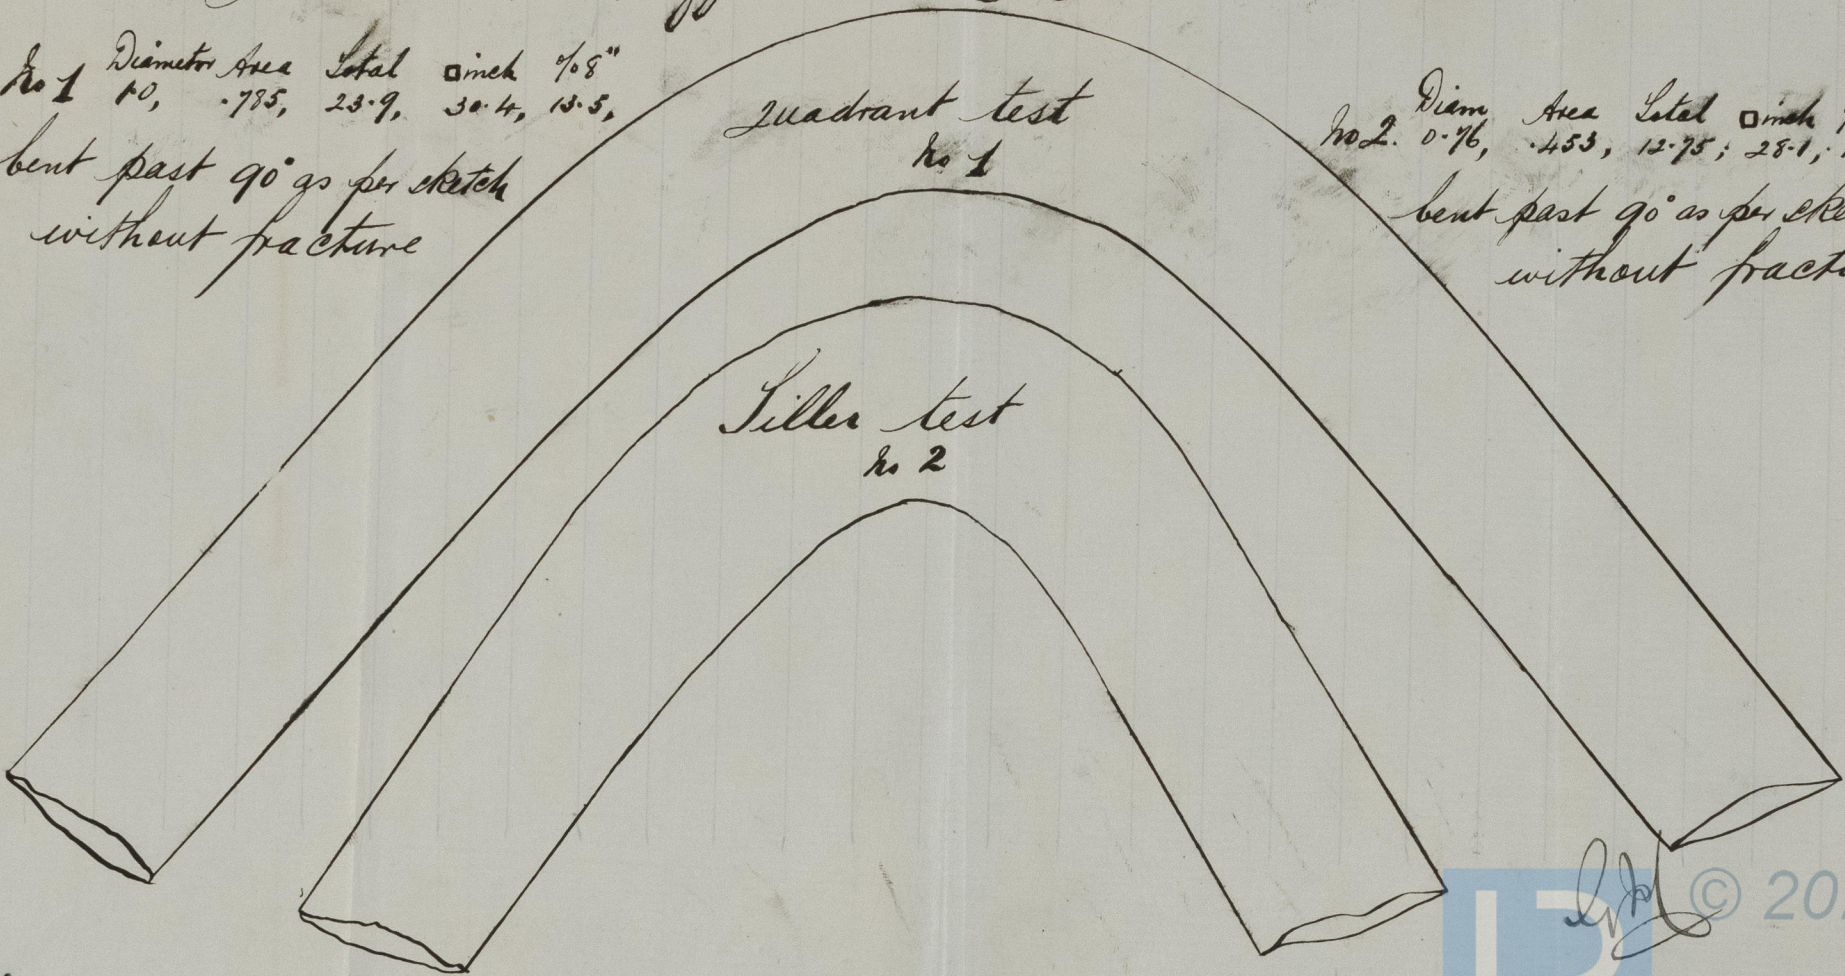 No 1 Diameter Area Total □inch % 8"
1.0, .785, 23.9, 30.4, 13.5,
bent past 90° as per sketch
without fracture
quadrant test
No 1
No 2. Diam Area Total □inch
0.76, .453, 12.75; 28.1,
bent past 90° as per ske
without fractu
Tiller test
No 2
© 20